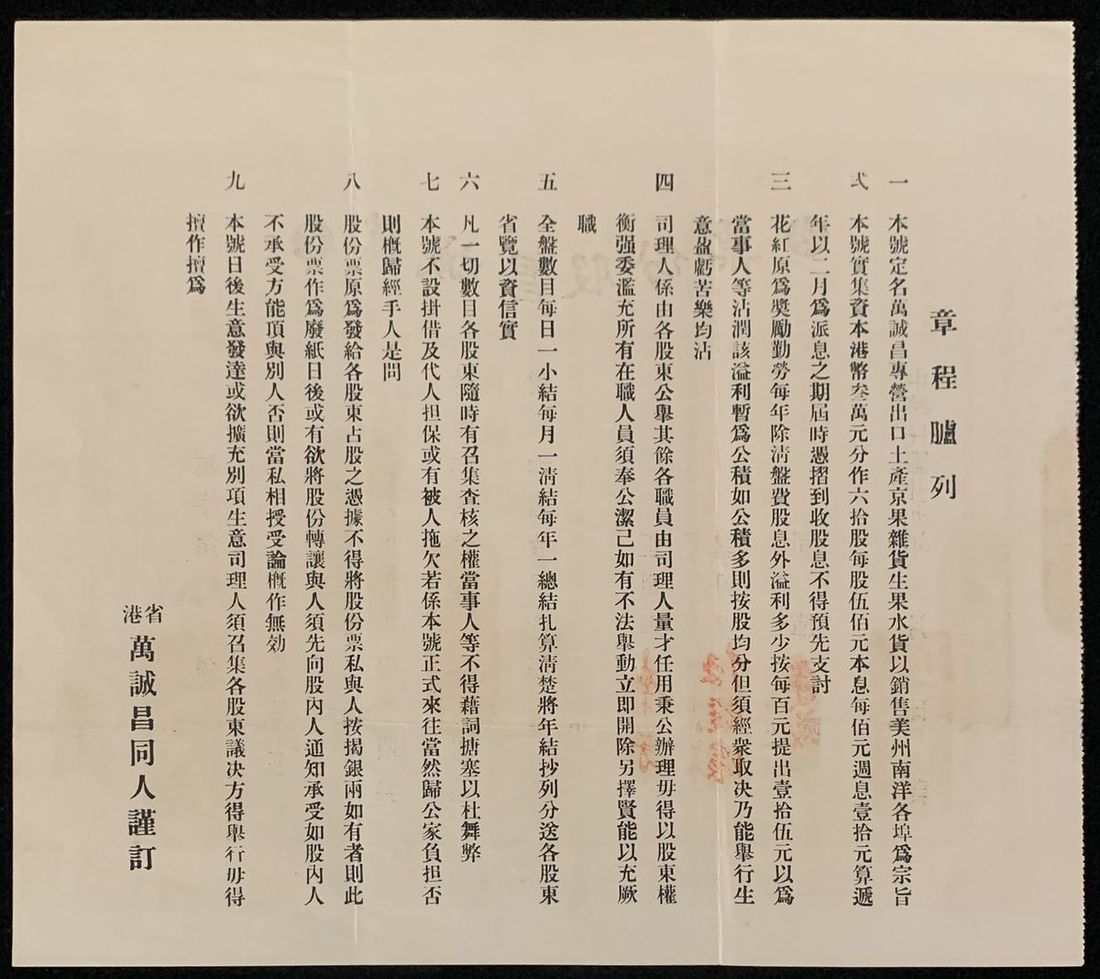 章程臚列
一 本號定名萬誠昌專營出口土產京果雜貨生果水貨以銷售美州南洋各埠爲宗旨
弍 本號實集資本港幣叁萬元分作六拾股每股伍佰元本息每佰元週息壹拾元算遞
年以二月爲派息之期屆時憑摺到收股息不得預先支討
三 花紅原爲獎勵勤勞每年除淸盤費股息外溢利多少按每百元提出壹拾伍元以爲
當事人等沾潤該溢利暫爲公積如公積多則按股均分但須經衆取决乃能舉行生
意盈虧苦樂均沾
四 司理人係由各股東公舉其餘各職員由司理人量才任用秉公辦理毋得以股東權
衡强委濫充所有在職人員須奉公潔己如有不法舉動立即開除另擇賢能以充厥
職
五 全盤數目每日一小結每月一淸結每年一總結扎算淸楚將年結抄列分送各股東
省覽以資信實
六 凡一切數目各股東隨時有召集查核之權當事人等不得藉詞搪塞以杜舞弊
七 本號不設掛借及代人担保或有被人拖欠若係本號正式來往當然歸公家負担否
則概歸經手人是問
八 股份票原爲發給各股東占股之憑據不得將股份票私與人按揭銀兩如有者則此
股份票作爲廢紙日後或有欲將股份轉讓與人須先向股內人通知承受如股內人
不承受方能頂與別人否則當私相授受論概作無効
九 本號日後生意發達或欲擴充別項生意司理人須召集各股東議决方得舉行毋得
擅作擅爲
省港 萬誠昌同人謹訂